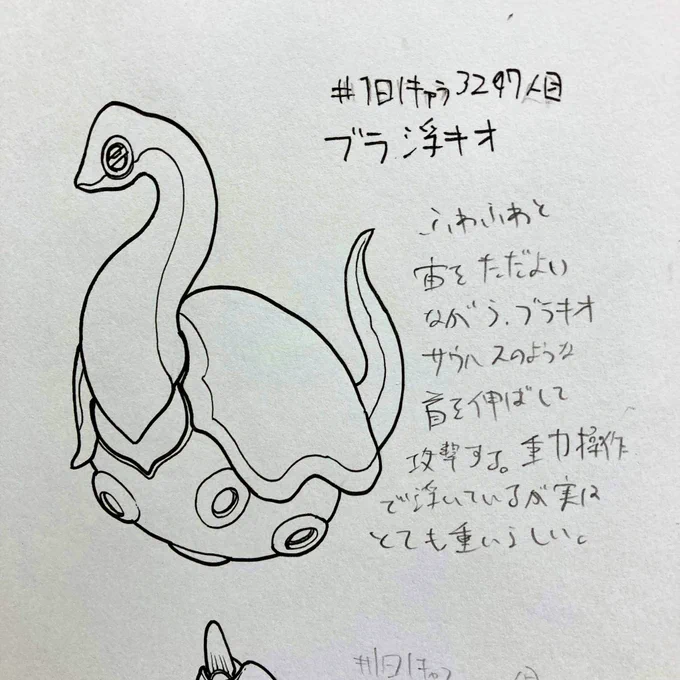 #1日1キャラ3247人目
ブラ浮キオ
ふわふわと
宙をただよい
ながら、ブラキオ
サウルスのような
首を伸ばして
攻撃する。重力操作
で浮いているが実は
とても重いらしい。
#1日1キャラ